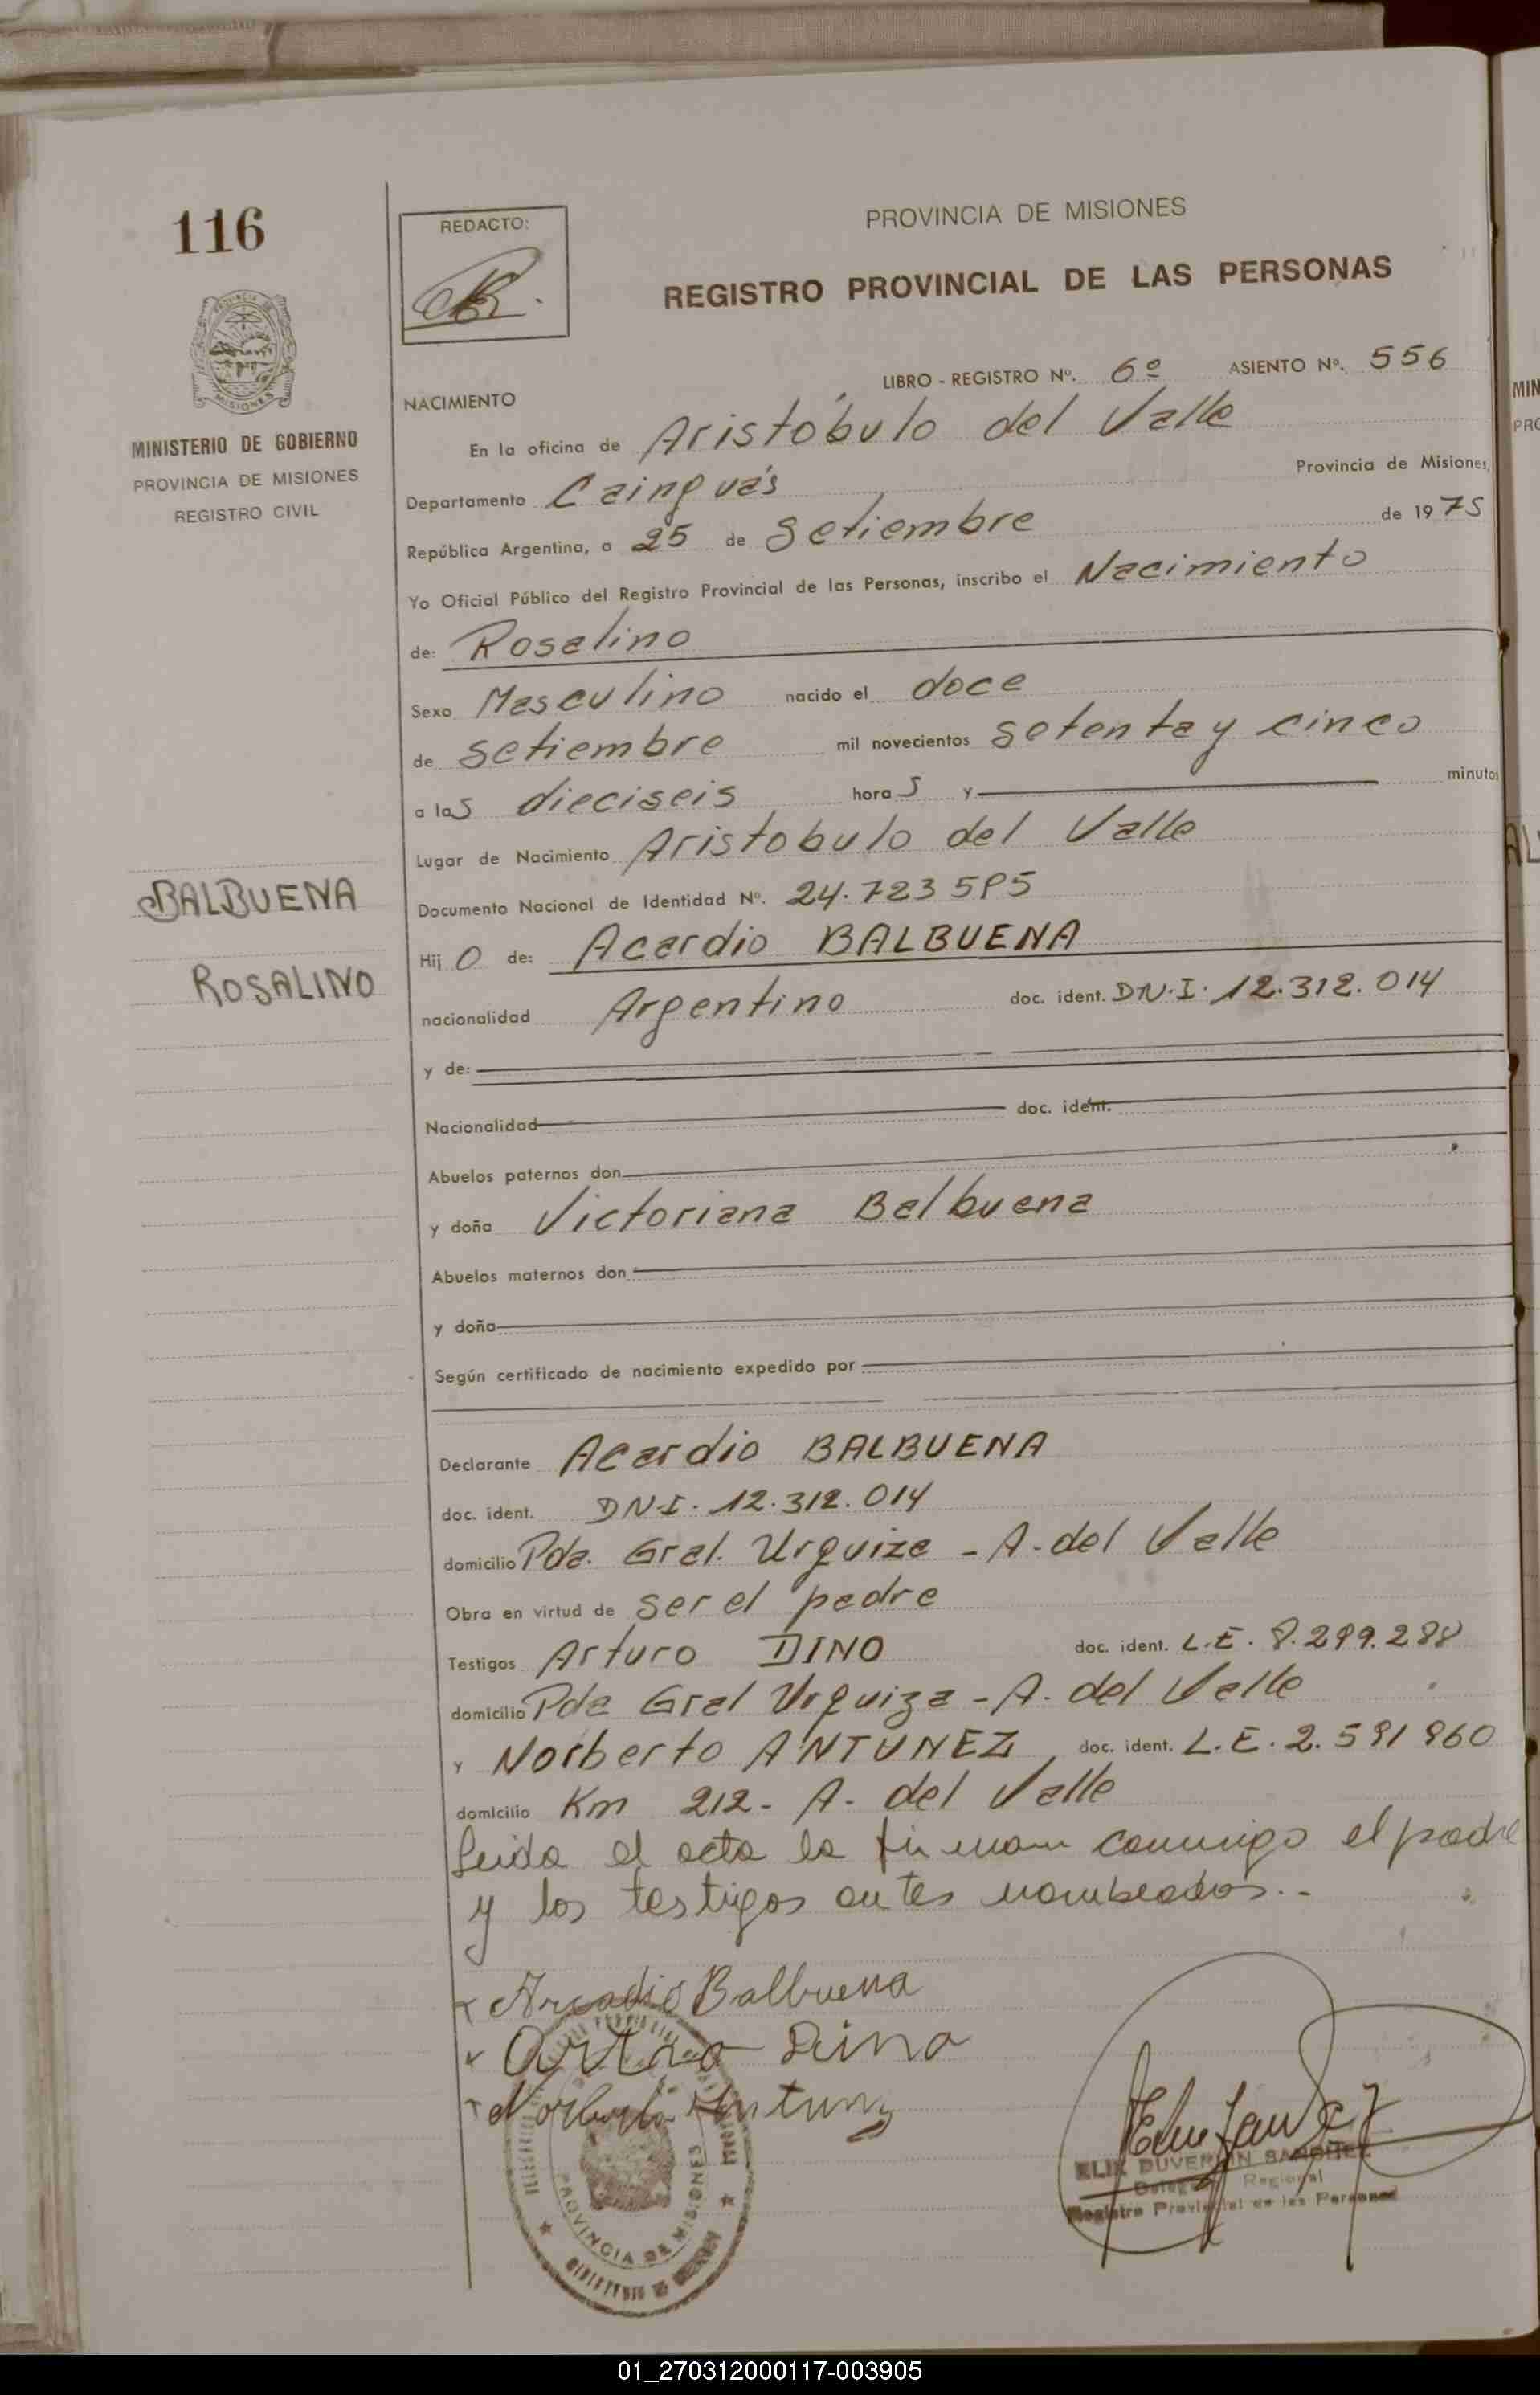 116
REDACTO:
PROVINCIA DE MISIONES
REGISTRO PROVINCIAL DE LAS PERSONAS
MISIONES
MINISTERIO DE GOBIERNO
PROVINCIA DE MISIONES
REGISTRO CIVIL
LIBRO - REGISTRO Nº. 6º ASIENTO Nº. 556
NACIMIENTO
En la oficina de Aristóbulo del Valle
Departamento Cainguás Provincia de Misiones,
República Argentina, a 25 de Setiembre de 1975
Yo Oficial Público del Registro Provincial de las Personas, inscribo el Nacimiento
de: Rosalino
Sexo Masculino nacido el doce
de Setiembre mil novecientos setenta y cinco
a las dieciseis horas y minutos
Lugar de Nacimiento Aristobulo del Valle
BALBUENA
ROSALINO
Documento Nacional de Identidad Nº. 24.723585
Hijo de: Acardio BALBUENA
nacionalidad Argentino doc. ident. D.N.I. 12.312.014
y de:
Nacionalidad doc. ident.
Abuelos paternos don
y doña Victoriana Balbuena
Abuelos maternos don
y doña
Según certificado de nacimiento expedido por
Declarante Acardio BALBUENA
doc. ident. D.N.I. 12.312.014
domicilio Pda. Gral. Urquiza - A. del Valle
Obra en virtud de ser el padre
Testigos Arturo DINO doc. ident. L.E. 8.299.288
domicilio Pda Gral Urquiza - A. del Valle
y Norberto ANTUNEZ, doc. ident. L.E. 2.581860
domicilio Km 212- A. del Valle
Leida el acta la firman conmigo el padre
y los testigos antes nombrados.-
Arcadio Balbuena
Arturo Dino
Norberto Antunez
PROVINCIA DE MISIONES
Regional
Registro Provincial de las Personas
01_270312000117-003905